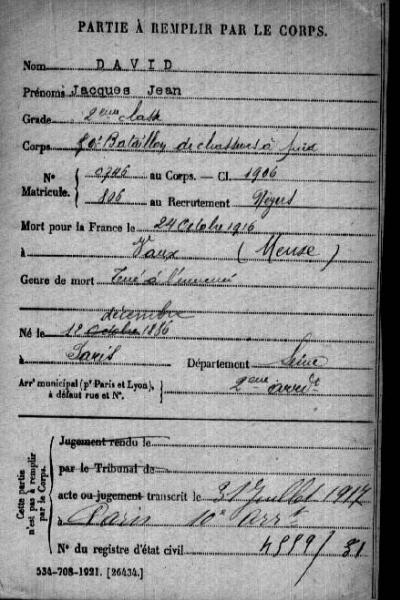 PARTIE À REMPLIR PAR LE CORPS.
Nom DAVID
Prénoms Jacques Jean
Grade 2eme classe
Corps Bataillon de chasseurs à pied
N° Matricule. au Corps. — Cl. 1906
806 au Recrutement
Mort pour la France le 24 Octobre 1916
à Vaux (Meuse)
Genre de mort Tué à l'ennemi
décembre
Né le 12 octobre 1886
à Paris Département Seine
Arrt municipal (pr Paris et Lyon), à défaut rue et N°. 2eme arrdt
Cette partie n'est pas à remplir par le Corps.
Jugement rendu le
par le Tribunal de
acte ou jugement transcrit le 31 Juillet 1917
à Paris 10e Arrt
N° du registre d'état civil
534-708-1921. [26434.]